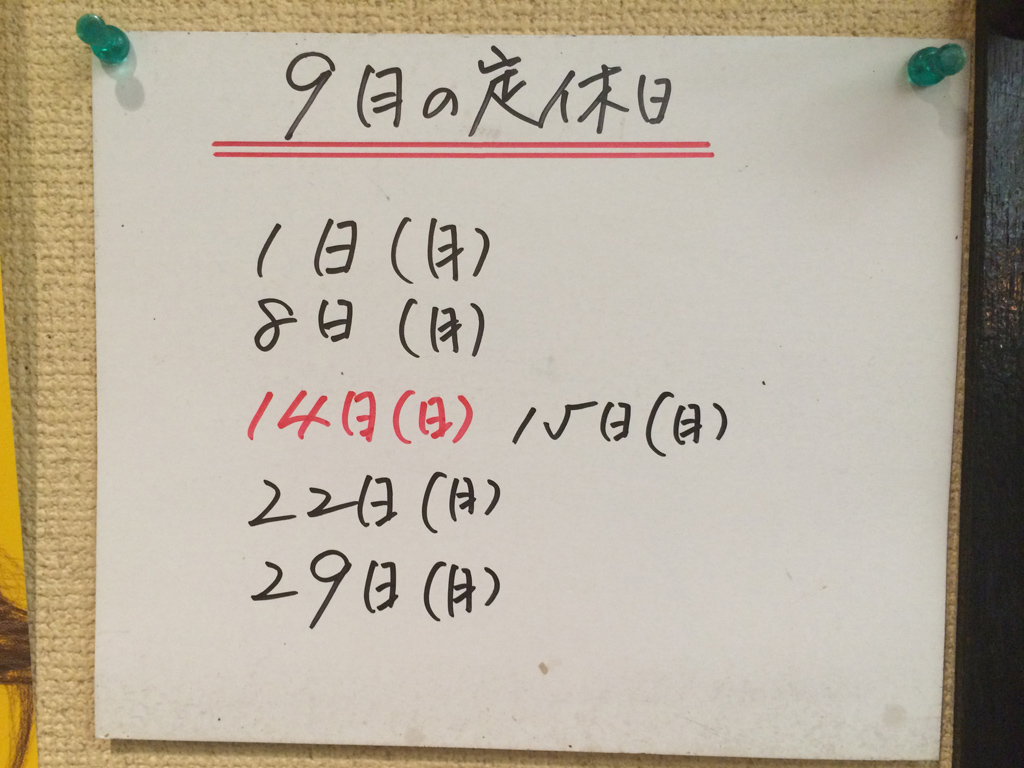 9月の定休日
1日(月)
8日(月)
14日(日) 15日(月)
22日(月)
29日(月)